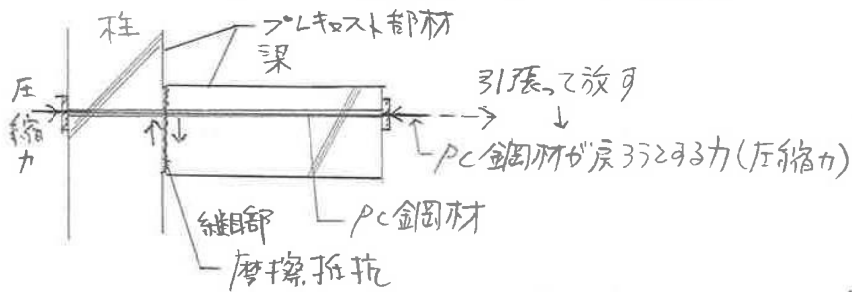 柱
プレキャスト部材
梁
圧縮力
引張って放す
PC鋼材が戻ろうとする力(圧縮力)
PC鋼材
継目部
摩擦抵抗